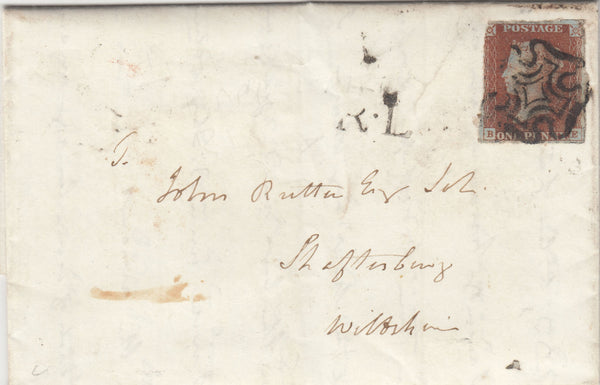 POSTAGE
B ONE PENNY E
R.L
To
John Rutter Esq Sol.
Shaftesbury
Wiltshire